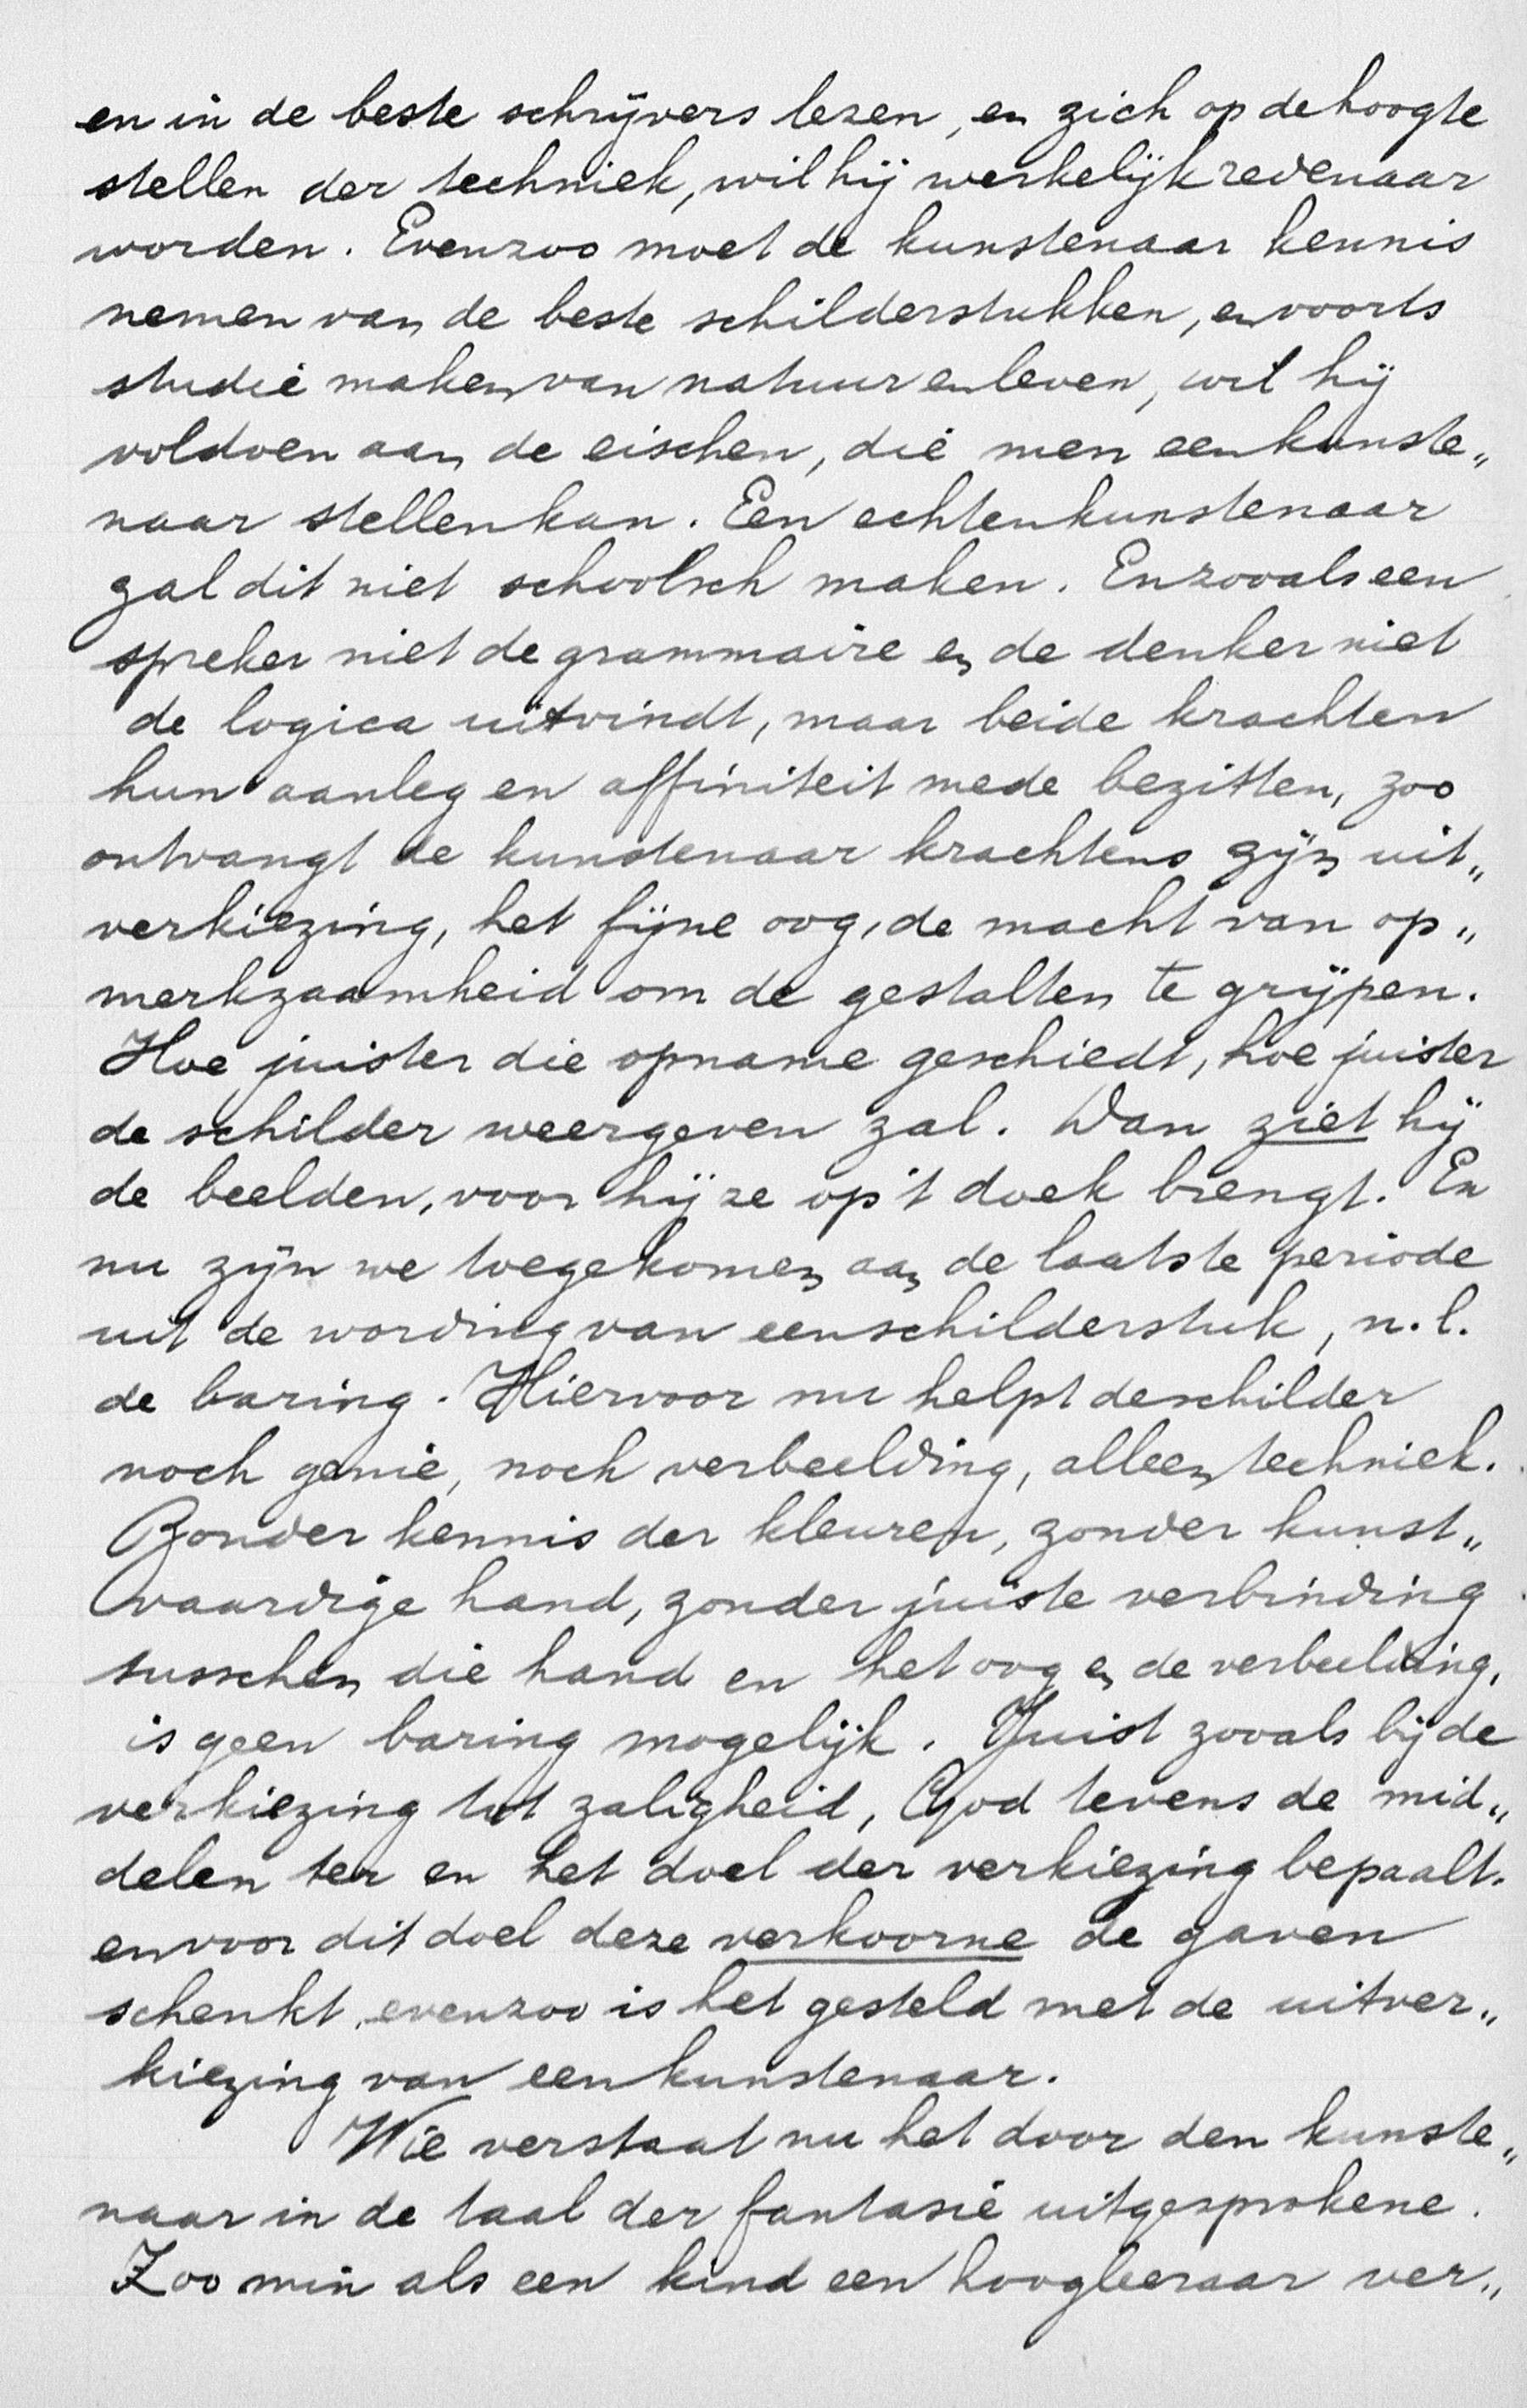 en in de beste schrijvers lezen, en zich op de hoogte
stellen der techniek, wil hij werkelijk redenaar
worden. Evenzoo moet de kunstenaar kennis
nemen van de beste schilderstukken, en voorts
studie maken van natuur en leven, wil hij
voldoen aan de eischen, die men een kunste„
naar stellen kan. Een echten kunstenaar
zal dit niet schoolsch maken. En zooals een
spreker niet de grammaire en de denker niet
de logica uitvindt, maar beide krachten
hun aanleg en affiniteit mede bezitten, zoo
ontvangt de kunstenaar krachtens zijn uit„
verkiezing, het fijne oog, de macht van op„
merkzaamheid om de gestalten te grijpen.
Hoe juister die opname geschiedt, hoe juister
de schilder weergeven zal. Dan ziet hij
de beelden, voor hij ze op 't doek brengt. En
nu zijn we toegekomen aan de laatste periode
uit de wording van een schilderstuk, n.l.
de baring. Hiervoor nu helpt de schilder
noch genie, noch verbeelding, alleen techniek.
Zonder kennis der kleuren, zonder kunst„
vaardige hand, zonder juiste verbinding
tusschen die hand en het oog en de verbeelding,
is geen baring mogelijk. Juist zooals bij de
verkiezing tot zaligheid, God tevens de mid„
delen ter en het doel der verkiezing bepaalt.
en voor dit doel deze verkoorne de gaven
schenkt, evenzoo is het gesteld met de uitver„
kiezing van een kunstenaar.
Wie verstaat nu het door den kunste„
naar in de taal der fantasie uitgesprokene.
Zoo min als een kind een hoogleeraar ver„